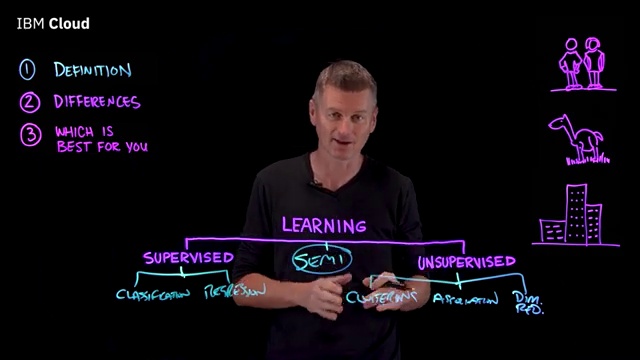 IBM Cloud
1 DEFINITION
2 DIFFERENCES
3 WHICH IS
BEST FOR YOU
LEARNING
SUPERVISED SEMI UNSUPERVISED
CLASSIFICATION REGRESSION CLUSTERING ASSOCIATION DIM.
RED.